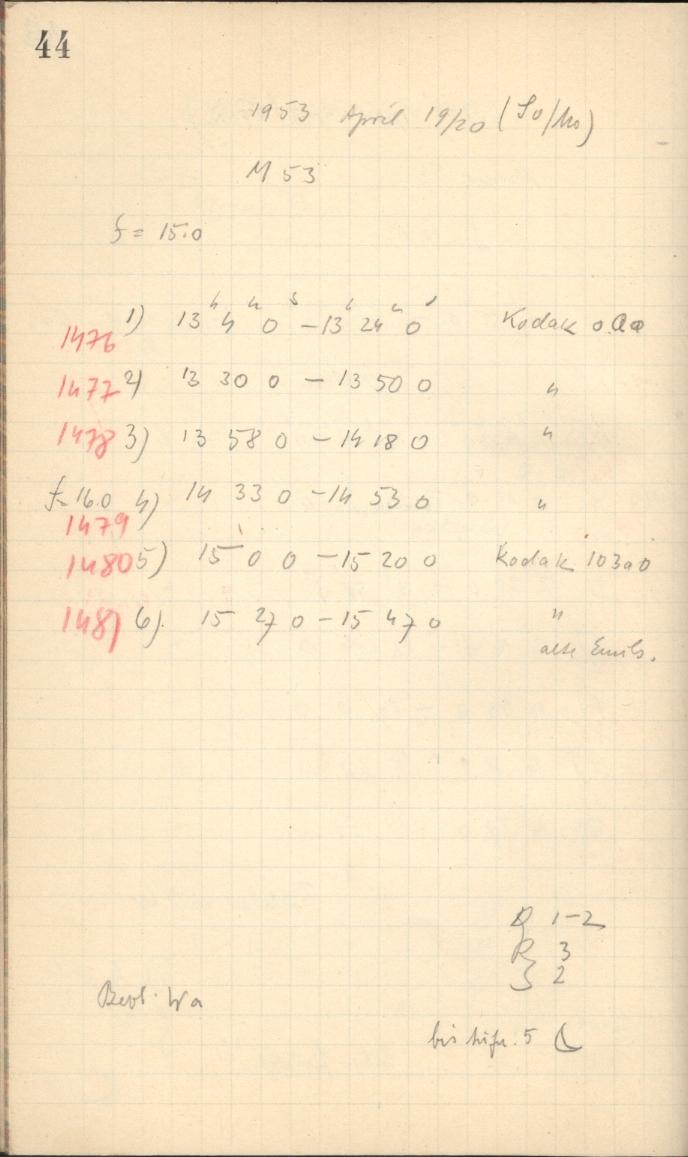 44
1953 April 19/20 (So/Mo)
M 53
f = 15.0
1476 1) 13h 4m 0s – 13h 24m 0s Kodak OaO
1477 2) 13 30 0 – 13 50 0 "
1478 3) 13 58 0 – 14 18 0 "
f = 16.0 4) 14 33 0 – 14 53 0 "
1479
1480 5) 15 0 0 – 15 20 0 Kodak 103a0
1481 6) 15 27 0 – 15 47 0 "
alte Emuls.
1–2
R 3
S 2
Beob. Wa
bis Aufn. 5 ☾